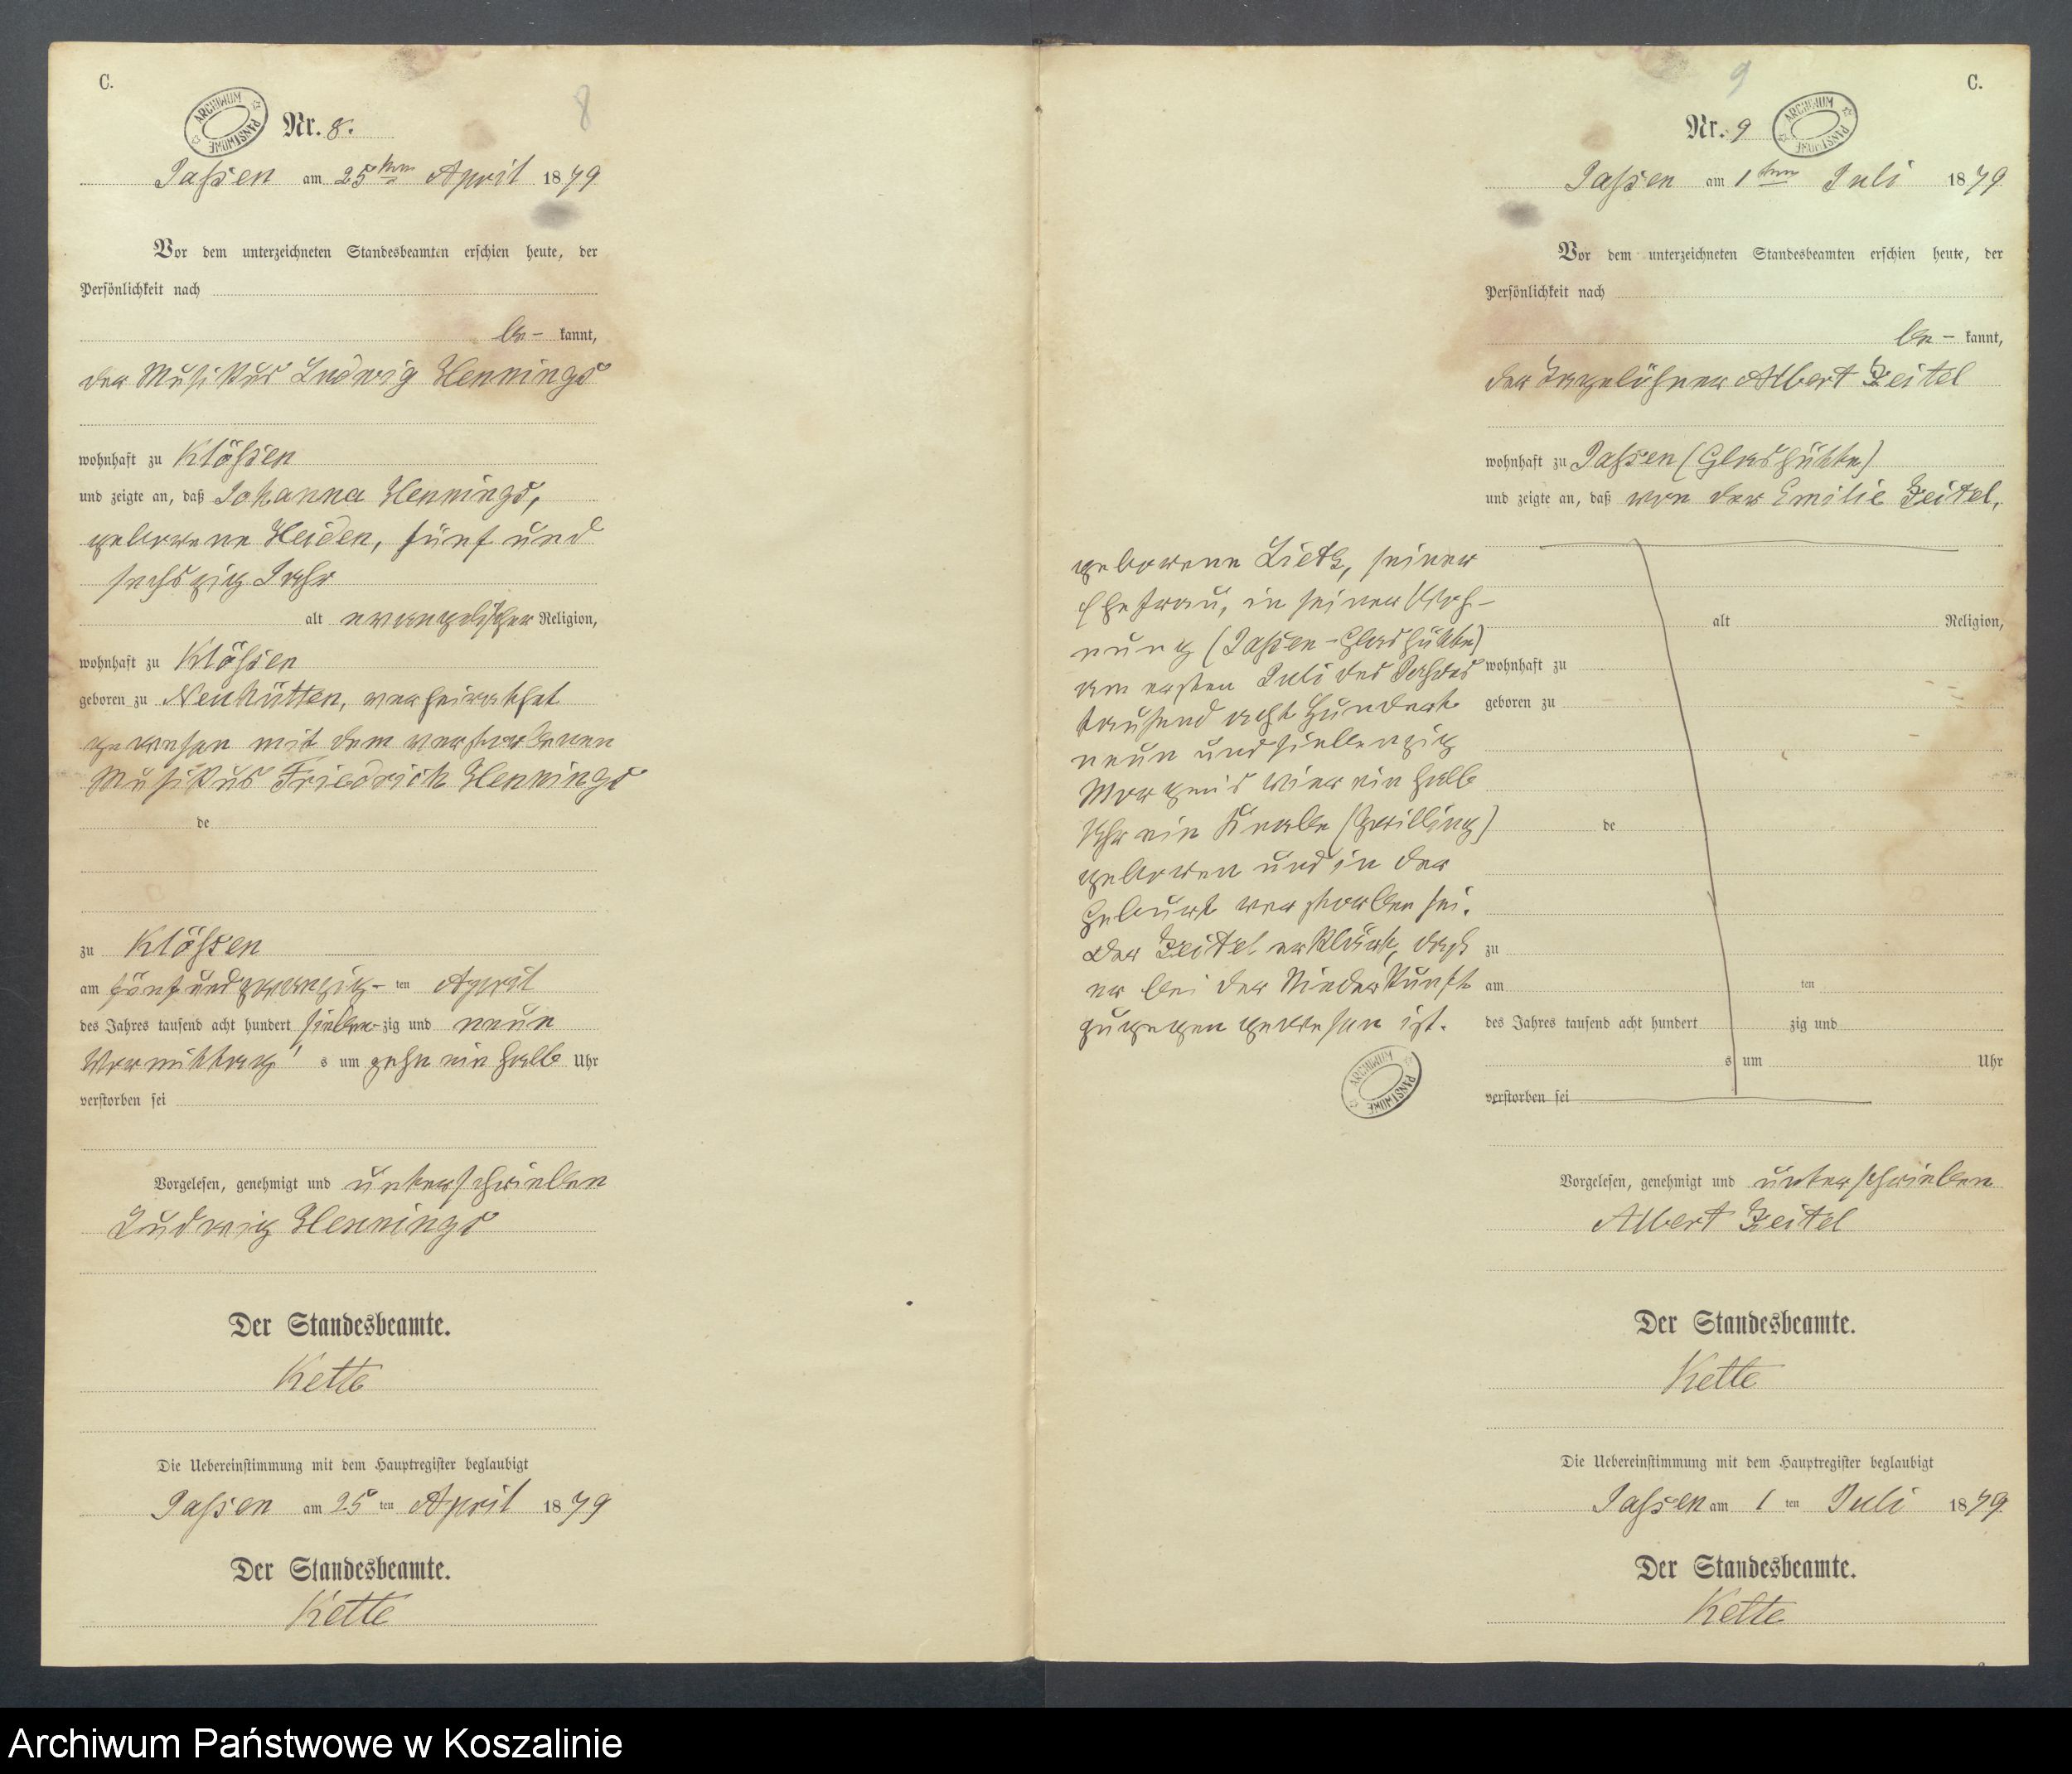 C.
ARCHIWUM PAŃSTWOWE
8
Nr. 8.
Jassen am 25ten April 1879
Vor dem unterzeichneten Standesbeamten erschien heute, der
Persönlichkeit nach
be- kannt,
der Musikus Ludwig Hennings
wohnhaft zu Klössen
und zeigte an, daß Johanna Hennings,
geborene Heiden, fünf und
sechszig Jahr
alt evangelischer Religion,
wohnhaft zu Klössen
geboren zu Neuhütten, verheirathet
gewesen mit dem verstorbenen
Musikus Friedrich Hennings
de
zu Klössen
am fünf und zwanzig- ten April
des Jahres tausend acht hundert sieben-zig und neun
Vormittag' s um zehn ein halb Uhr
verstorben sei
Vorgelesen, genehmigt und unterschrieben
Ludwig Hennings
Der Standesbeamte.
Kette
Die Uebereinstimmung mit dem Hauptregister beglaubigt
Jassen am 25 ten April 1879
Der Standesbeamte.
Kette
9
C.
Nr. 9
ARCHIWUM PAŃSTWOWE
Jassen am 1ten Juli 1879
Vor dem unterzeichneten Standesbeamten erschien heute, der
Persönlichkeit nach
be- kannt,
der Tagelöhner Albert Zeitel
wohnhaft zu Jassen (Glashütte)
und zeigte an, daß von der Emilie Zeitel,
geborene Lietz, seiner
Ehefrau, in seiner Woh-
nung (Jassen-Glashütte)
am ersten Juli des Jahres
tausend acht hundert
neun und siebenzig
Morgens vier ein halb
Uhr ein Knabe (Zwilling)
geboren und in der
Geburt verstorben sei.
Der Zeitel erklärt, daß
er bei der Niederkunft
zugegen gewesen ist.
ARCHIWUM PAŃSTWOWE
alt Religion,
wohnhaft zu
geboren zu
de
zu
am ten
des Jahres tausend acht hundert zig und
s um Uhr
verstorben sei
Vorgelesen, genehmigt und unterschrieben
Albert Zeitel
Der Standesbeamte.
Kette
Die Uebereinstimmung mit dem Hauptregister beglaubigt
Jassen am 1 ten Juli 1879
Der Standesbeamte.
Kette
Archiwum Państwowe w Koszalinie